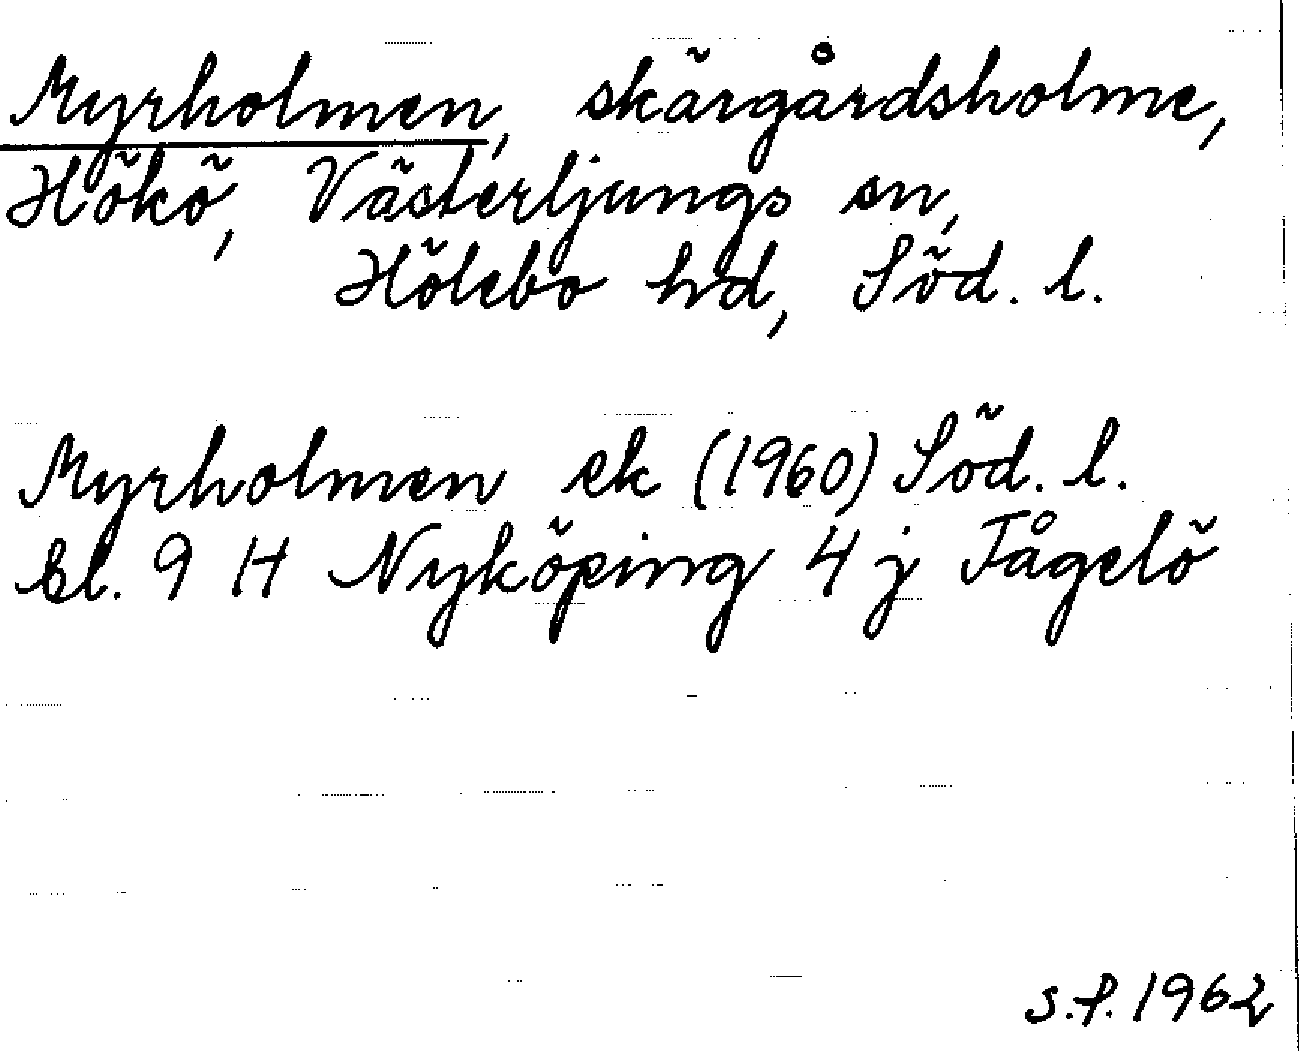 Myrholmen, skärgårdsholme,
Hökö, Västerljungs sn,
Hölebo hd, Söd. l.
Myrholmen ek (1960) Söd. l.
bl. 9 H Nyköping 4 j Fågelö
s.f. 1962